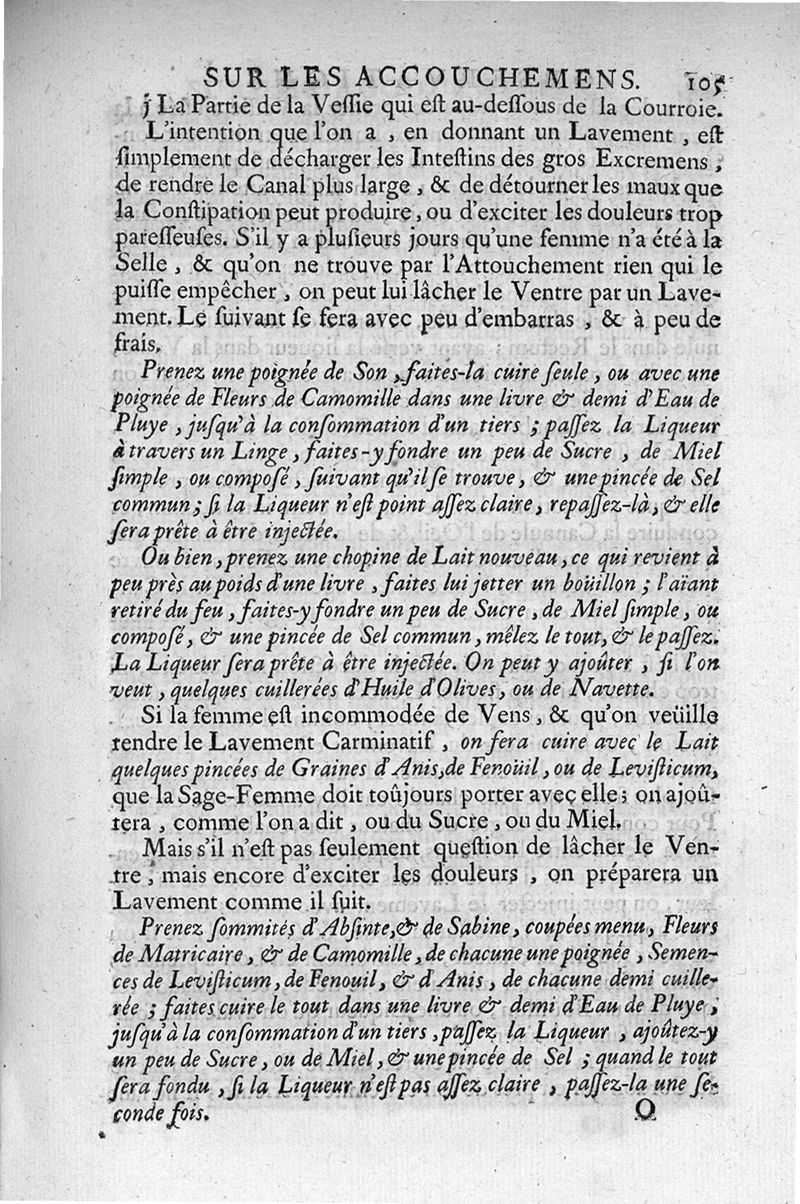 SUR LES ACCOUCHEMENS. 105
j La Partie de la Veſſie qui eſt au-deſſous de la Courroie.
L'intention que l'on a , en donnant un Lavement , eſt
ſimplement de décharger les Inteſtins des gros Excremens ,
de rendre le Canal plus large , & de détourner les maux que
la Conſtipation peut produire, ou d'exciter les douleurs trop
pareſſeuſes. S'il y a pluſieurs jours qu'une femme n'a été à la
Selle , & qu'on ne trouve par l'Attouchement rien qui le
puiſſe empêcher , on peut lui lâcher le Ventre par un Lave-
ment. Le ſuivant ſe fera avec peu d'embarras , & à peu de
frais.
Prenez une poignée de Son , faites-la cuire ſeule , ou avec une
poignée de Fleurs de Camomille dans une livre & demi d'Eau de
Pluye , juſqu'à la conſommation d'un tiers ; paſſez la Liqueur
à travers un Linge , faites-y fondre un peu de Sucre , de Miel
ſimple , ou compoſé , ſuivant qu'il ſe trouve , & une pincée de Sel
commun ; ſi la Liqueur n'eſt point aſſez claire , repaſſez-là , & elle
ſera prête à être injectée.
Ou bien , prenez une chopine de Lait nouveau , ce qui revient à
peu près au poids d'une livre , faites lui jetter un boüillon ; l'aïant
retiré du feu , faites-y fondre un peu de Sucre , de Miel ſimple , ou
compoſé , & une pincée de Sel commun , mêlez le tout , & le paſſez.
La Liqueur ſera prête à être injectée. On peut y ajoûter , ſi l'on
veut , quelques cuillerées d'Huile d'Olives, ou de Navette.
Si la femme eſt incommodée de Vens , & qu'on veüille
rendre le Lavement Carminatif , on fera cuire avec le Lait
quelques pincées de Graines d'Anis, de Fenoüil , ou de Leviſticum,
que la Sage-Femme doit toûjours porter avec elle ; on ajoû-
tera , comme l'on a dit , ou du Sucre , ou du Miel.
Mais s'il n'eſt pas ſeulement queſtion de lâcher le Ven-
tre , mais encore d'exciter les douleurs , on préparera un
Lavement comme il ſuit.
Prenez ſommités d'Abſinte, & de Sabine , coupées menu , Fleurs
de Matricaire , & de Camomille , de chacune une poignée , Semen-
ces de Leviſticum , de Fenouil , & d'Anis , de chacune demi cuille-
rée ; faites cuire le tout dans une livre & demi d'Eau de Pluye ,
juſqu'à la conſommation d'un tiers , paſſez la Liqueur , ajoûtez-y
un peu de Sucre , ou de Miel , & une pincée de Sel ; quand le tout
ſera fondu , ſi la Liqueur n'eſt pas aſſez claire , paſſez-la une ſe-
conde fois. O